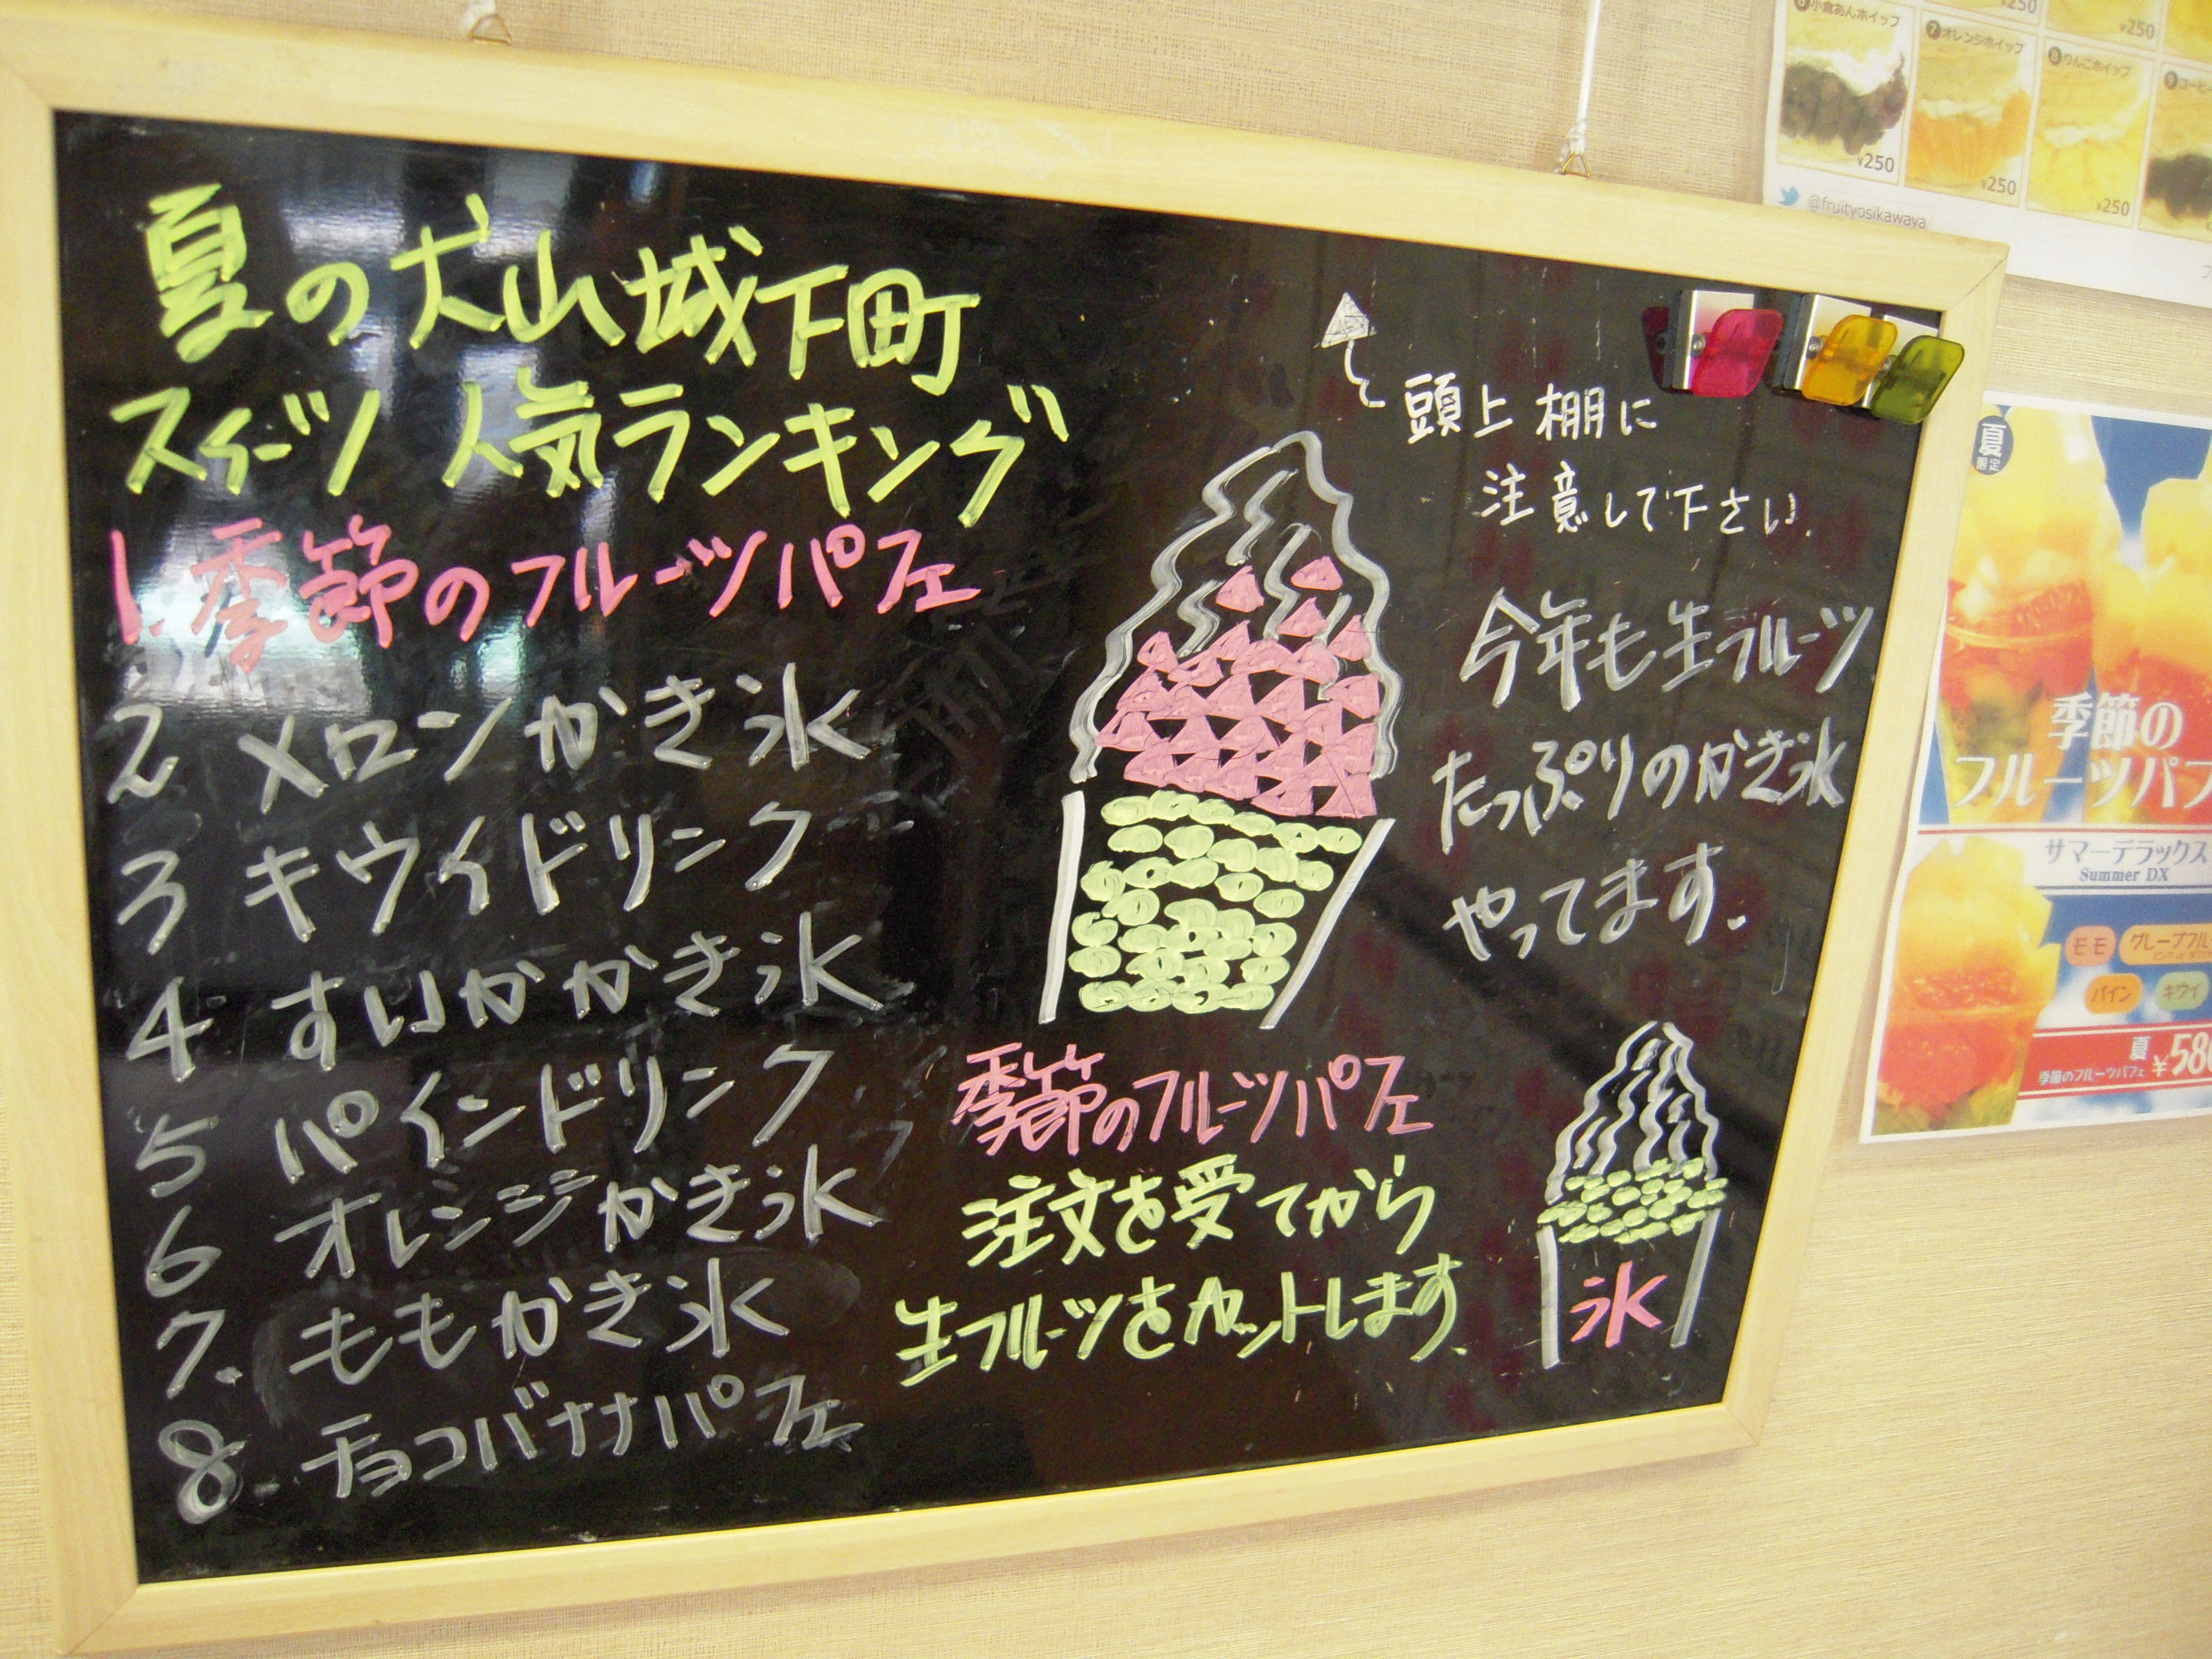 夏の犬山城下町
スイーツ 人気ランキング
1.季節のフルーツパフェ
2 メロンかき氷
3 キウイドリンク
4 すいかかき氷
5 パインドリンク
6 オレンジかき氷
7. ももかき氷
8 チョコバナナパフェ
頭上棚に
注意して下さい.
今年も生フルーツ
たっぷりのかき氷
やってます.
季節のフルーツパフェ
注文を受てから
生フルーツをカットします.
氷
¥250
¥250
❻小倉あんホイップ
¥250
❼オレンジホイップ
¥250
❽りんごホイップ
¥250
❾コーヒー
@fruityosikawaya
夏
季節の
フルーツパフ
サマーデラックス
Summer DX
モモ
グレープフル
パイン
キウイ
夏
季節のフルーツパフェ ¥580